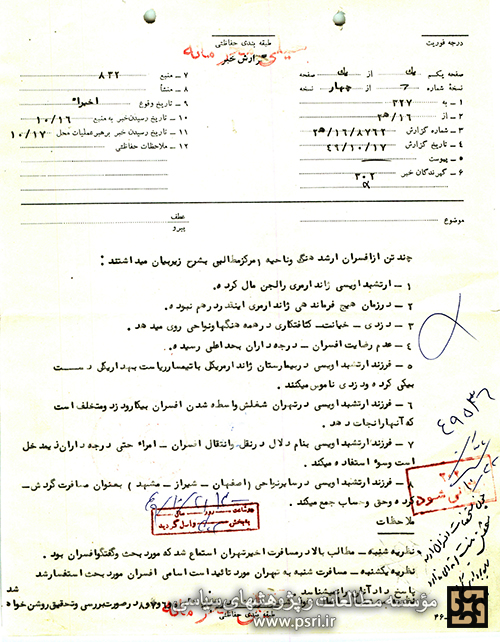 درجه فوریت
طبقه بندی حفاظتی
خیلی محرمانه
گزارش خبر
صفحه یکم از یک صفحه
نسخه شماره از چهار نسخه
۱ - به ۳۲۷
۲ - از ۱۶/ه‍
۳ - شماره گزارش ۱۶/۸۷۶۲/ه‍
۴ - تاریخ گزارش ۴۶/۱۰/۱۷
۵ - پیوست
۶ - گیرندگان خبر ۳۰۲
۷ - منبع ۸۳۲
۸ - منشأ
۹ - تاریخ وقوع اخیرا
۱۰ - تاریخ رسیدن خبر به منبع ۱۰/۱۶
۱۱ - تاریخ رسیدن خبر برهبر عملیات محل ۱۰/۱۷
۱۲ - ملاحظات حفاظتی
موضوع
عطف
پیرو
چند تن از افسران ارشد هنگ وناحیه ۱ مرکز مطالبی بشرح زیر بیان میداشتند :
۱ - ارتشبد اویسی ژاندارمری رالجن مال کرده.
۲ - در زمان هیچ فرماندهی ژاندارمری اینقدر درهم نبوده.
۳ - دزدی - خیانت - کثافتکاری در همه هنگها ونواحی روی میدهد.
۴ - عدم رضایت افسران - درجه داران بحد اعلی رسیده.
۵ - فرزند ارتشبد اویسی در بیمارستان ژاندارمریکل با تیمسار ریاست بهداریکل دست
بیکی کرده و دزدی ناموس میکنند.
۶ - فرزند ارتشبد اویسی در تهران شغلش واسطه شدن افسران بیکار و دزد ومتخلف است
که آنها را نجات دهد.
۷ - فرزند ارتشبد اویسی بنام دلال در نقل وانتقال افسران - امراء حتی درجه داران ذیدخل
است وسوء استفاده میکند.
۸ - فرزند ارتشبد اویسی در سایر نواحی (اصفهان - شیراز - مشهد) بعنوان مسافرت گردش
کرده وحق وحساب جمع میکند.
ملاحظات
نظریه شنبه - مطالب بالا در مسافرت اخیر تهران استماع شد که مورد بحث وگفتگو افسران بود.
نظریه یکشنبه - مسافرت شنبه به تهران مورد تائید است اسامی افسران مورد بحث استفسار شد
پاسخ داد آنان را نمیشناسد
در صورت بررسی وتحقیق روشن خواهد شد
مؤسسه مطالعات و پژوهشهای سیاسی
www.psri.ir